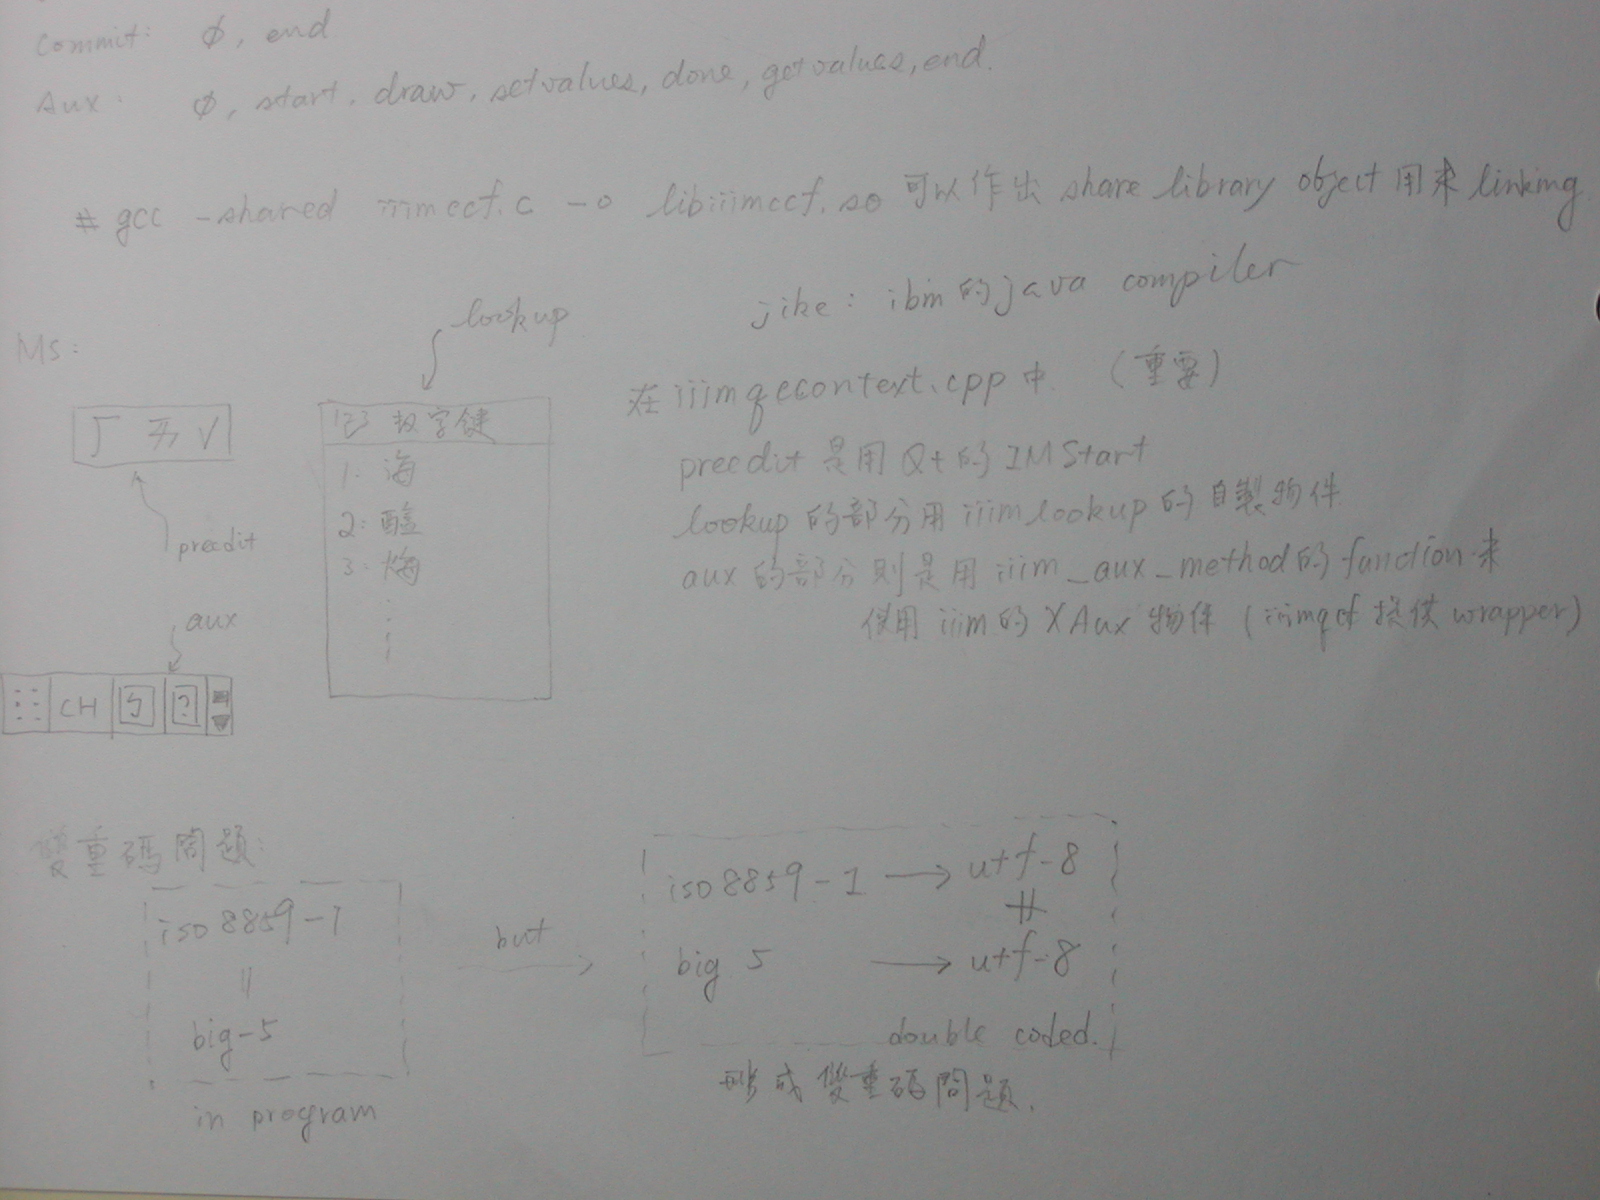 Commit: ϕ, end
Aux: ϕ, start, draw, setvalues, done, getvalues, end.
# gcc -shared iiimccf.c -o libiiimccf.so 可以作出 share library object 用来 linking
jike: ibm 的 java compiler
MS:
lookup
ㄏ ㄞ ˇ
preedit
123 数字键
1. 海
2. 醢
3.
aux
CH ㄅ ?
在 iiimqccontext.cpp 中. (重要)
preedit 是用 Qt 的 IMStart
lookup 的部分用 iiimlookup 的自製物件
aux 的部分則是用 iiim_aux_method 的 function 来
使用 iiim 的 XAux 物件 (iiimqcf 提供 wrapper)
雙重碼問題:
iso8859-1
||
big-5
in program
but
iso8859-1 → utf-8
≠
big 5 → utf-8
double coded.
形成雙重碼問題.